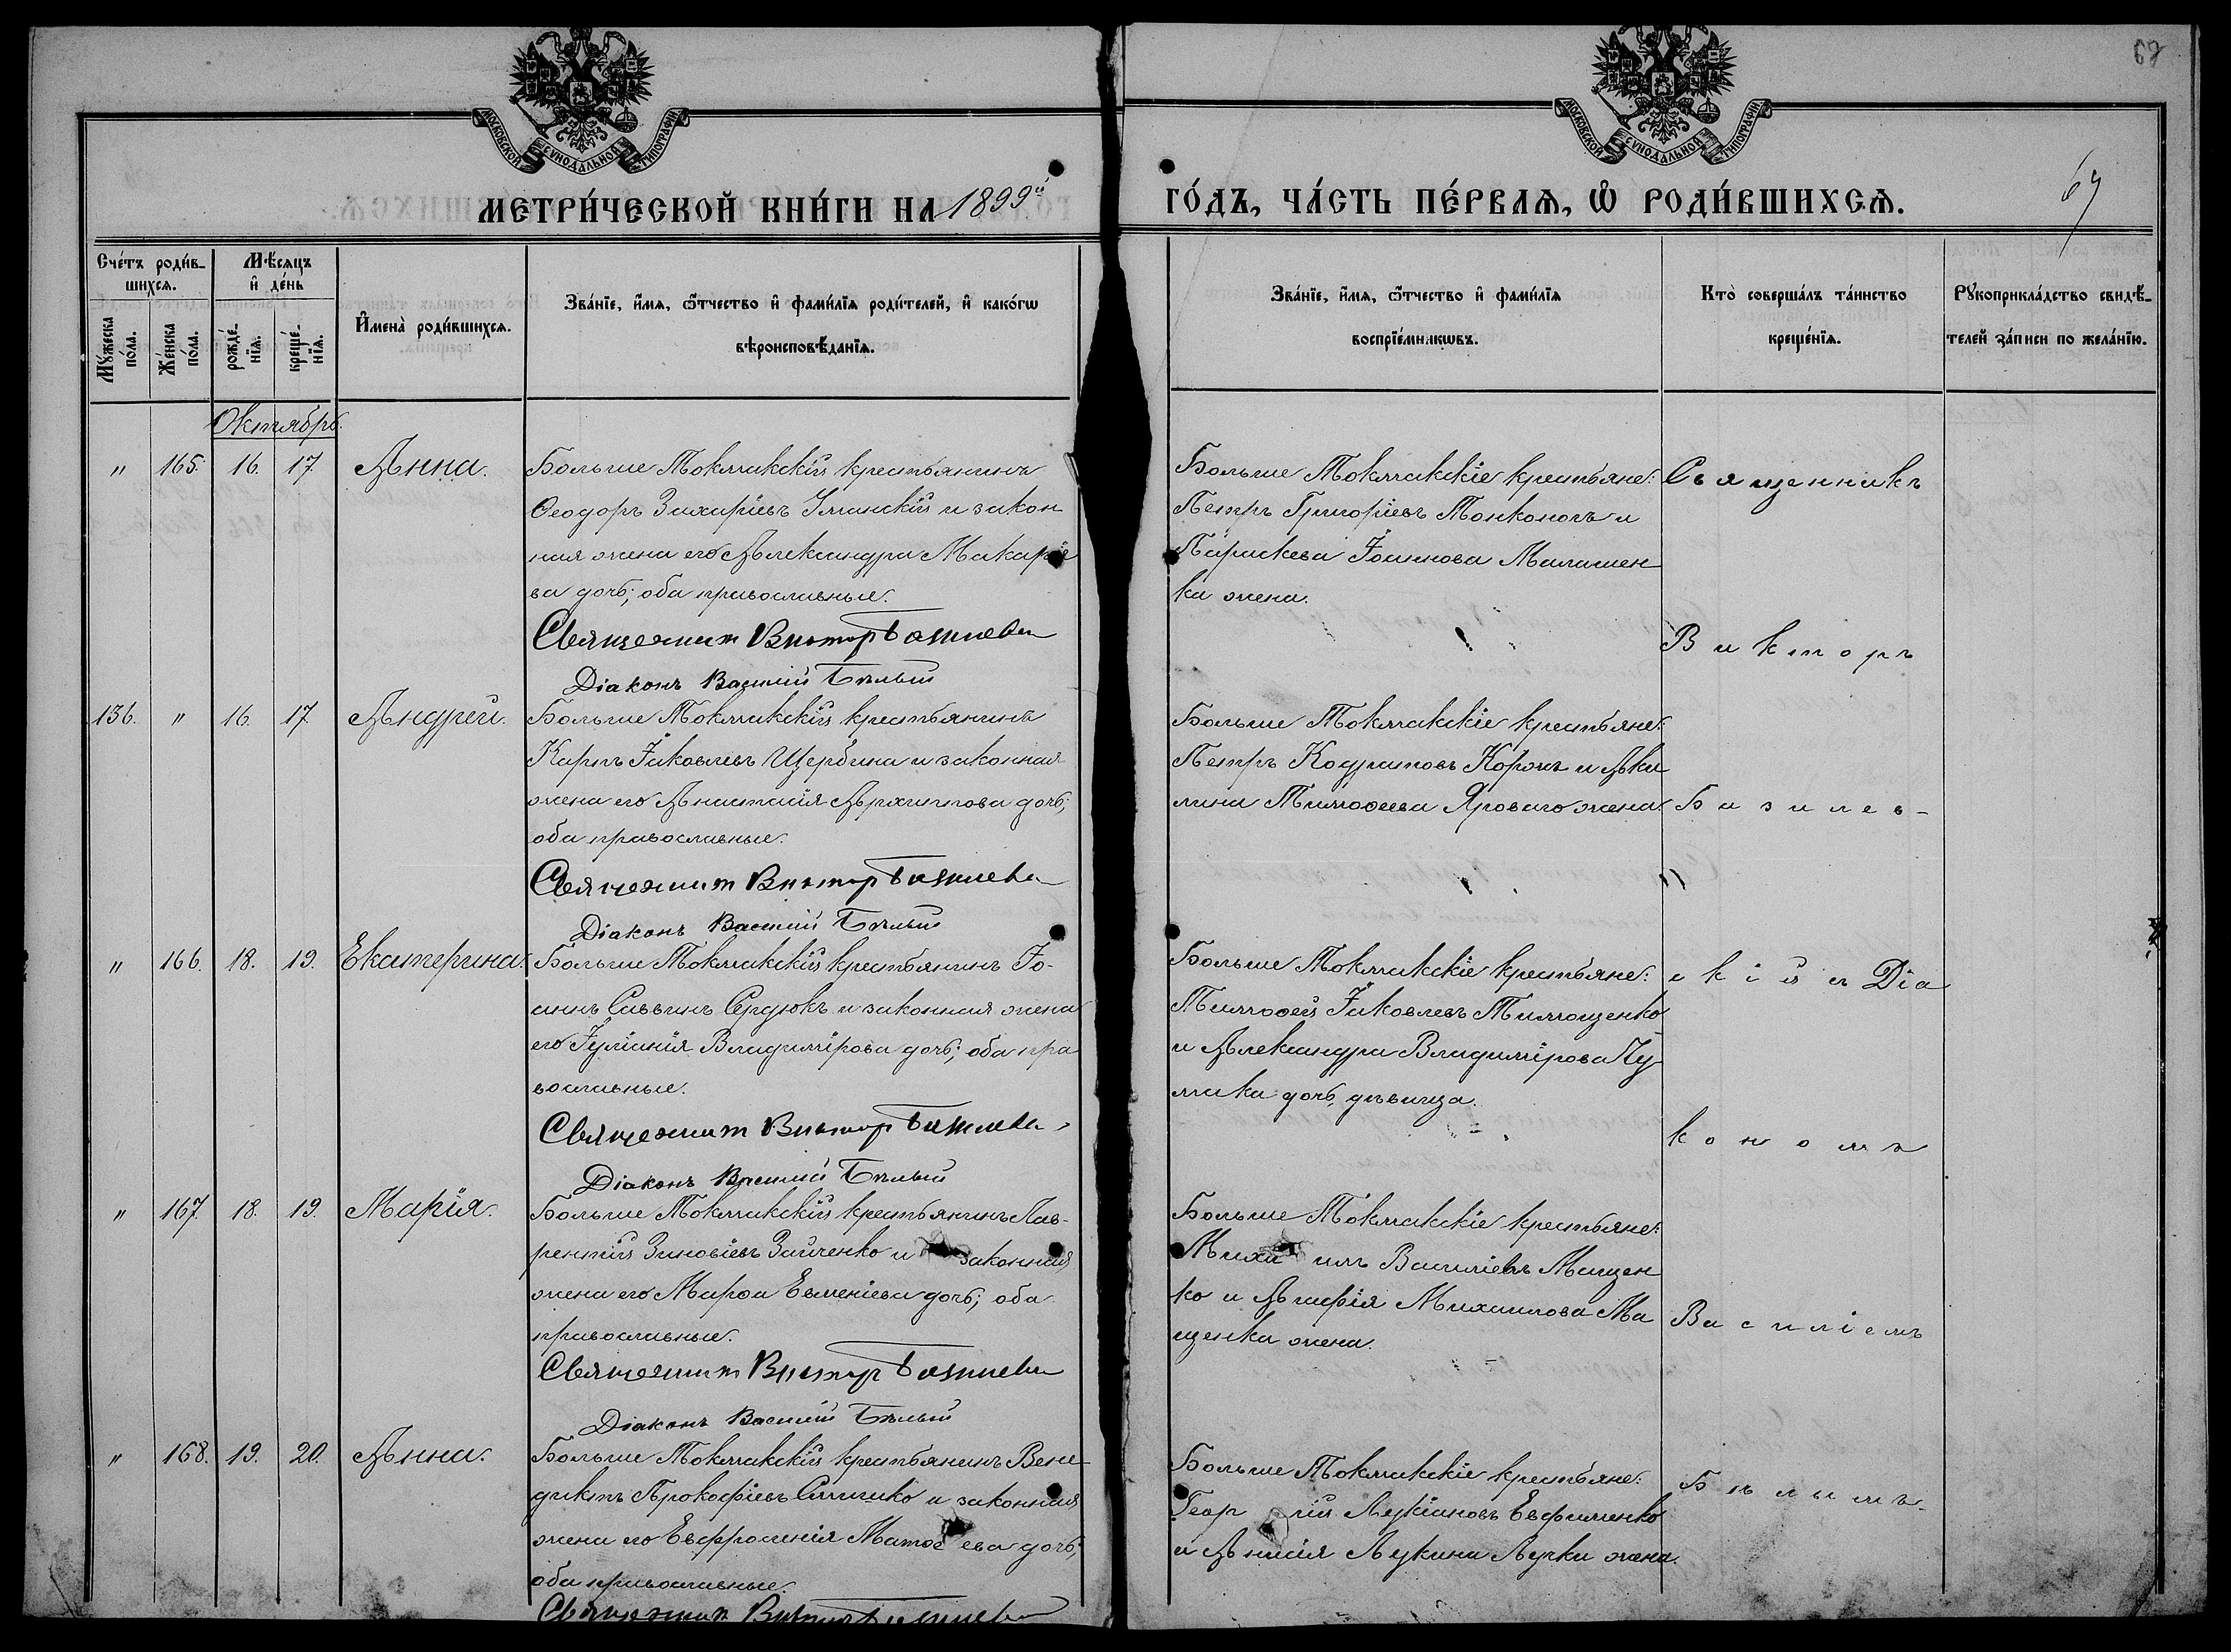 67
МОСКОВСКОЙ СѴНОДАЛЬНОЙ ТИПОГРАФІИ
МОСКОВСКОЙ СѴНОДАЛЬНОЙ ТИПОГРАФІИ
МЕТРИ́ЧЕСКОЙ КНИ́ГИ НА 1899й
ГО́ДЪ, ЧА́СТЬ ПЕ́РВАѦ, Ѡ҆ РОДИ́ВШИХСѦ.
69
Сче́тъ роди́в-
шихсѧ.
Мꙋ́жеска по́ла.
Же́нска по́ла.
Мѣ́сѧцъ
и҆ де́нь
рожде́-нїѧ.
креще́-нїѧ.
И҆мена̀ роди́вшихсѧ.
Зва́нїе, и҆́мѧ, ѻ҆́тчество и҆ фами́лїѧ роди́телей, и҆ како́гѡ
вѣроисповѣ́данїѧ.
Зва́нїе, и҆́мѧ, ѻ҆́тчество и҆ фами́лїѧ
воспрїе́мникѡвъ.
Кто̀ соверша́лъ та́инство
креще́нїѧ.
Рꙋкоприкла́дство свидѣ́-
телей за́писи по жела́нїю.
Октябрь.
" 165. 16. 17. Анна.
Больше Токмакскій крестьянинъ
Ѳеодоръ Захаріевъ Уманскій и закон
ная жена его Александра Макаріе
ва дочь; оба православные.
Священник Виктор Базилеви
Діаконъ Василій Бѣлый
Больше Токмакскіе крестьяне:
Петръ Григоріевъ Тонконогъ и
Параскева Іоаннова Малашен
ка жена.
136. " 16. 17. Андрей.
Больше Токмакскій крестьянинъ
Карпъ Іаковлевъ Щербина и законная
жена его Анастасія Архиппова дочь;
оба православные.
Священник Виктор Базилеви
Діаконъ Василій Бѣлый
Больше Токмакскіе крестьяне:
Петръ Кодратовъ Корж и Аки
лина Тимоѳеева Яроваго жена.
" 166. 18. 19. Екатерина.
Больше Токмакскій крестьянинъ Іо-
аннъ Саввинъ Сердюкъ и законная жена
его Іуліанія Владимірова дочь; оба пра
вославные.
Священник Виктор Базилеви
Діаконъ Василій Бѣлый
Больше Токмакскіе крестьяне:
Тимоѳей Іаковлевъ Тимощенко
и Александра Владимірова Чу
мака дочь, дѣвица.
" 167. 18. 19. Марія.
Больше Токмакскій крестьянинъ Лав-
рентій Зиновіевъ Зайченко и законная
жена его Марѳа Евменіева дочь; оба
православные.
Священник Виктор Базилеви
Діаконъ Василій Бѣлый
Больше Токмакскіе крестьяне:
Михаилъ Василіевъ Мащен
ко и Агафія Михаилова Ма
щенка жена.
" 168. 19. 20. Анна.
Больше Токмакскій крестьянинъ Вене-
диктъ Прокофіевъ и законная
жена его Евфросинія Матѳеева дочь;
оба православные.
Священник Виктор Базилеви
Больше Токмакскіе крестьяне:
Георгій Лукіановъ Евфименко
и Анисія Лукина Лучки жена.
Священникъ
Викторъ
Базилев-
скій съ Діа
кономъ
Василіемъ
Бѣлымъ.